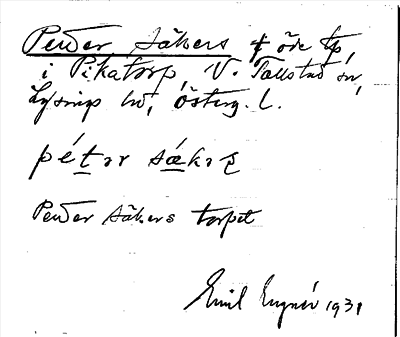 Petter Såkers † öde tp,
i Pikatorp, V. Tollstad sn,
Lysings hd, Österg. l.
pét̲ər sǻ̲kəʂ
Petter Såkers torpet
Emil Engnér 1931